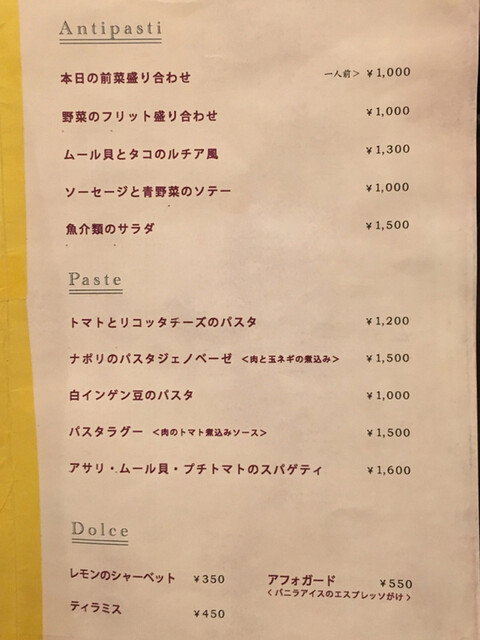 Antipasti
本日の前菜盛り合わせ 一人前> ¥1,000
野菜のフリット盛り合わせ ¥1,000
ムール貝とタコのルチア風 ¥1,300
ソーセージと青野菜のソテー ¥1,000
魚介類のサラダ ¥1,500
Paste
トマトとリコッタチーズのパスタ ¥1,200
ナポリのパスタジェノベーゼ <肉と玉ネギの煮込み> ¥1,500
白インゲン豆のパスタ ¥1,000
パスタラグー <肉のトマト煮込みソース> ¥1,500
アサリ・ムール貝・プチトマトのスパゲティ ¥1,600
Dolce
レモンのシャーベット ¥350
ティラミス ¥450
アフォガード ¥550
<バニラアイスのエスプレッソがけ>